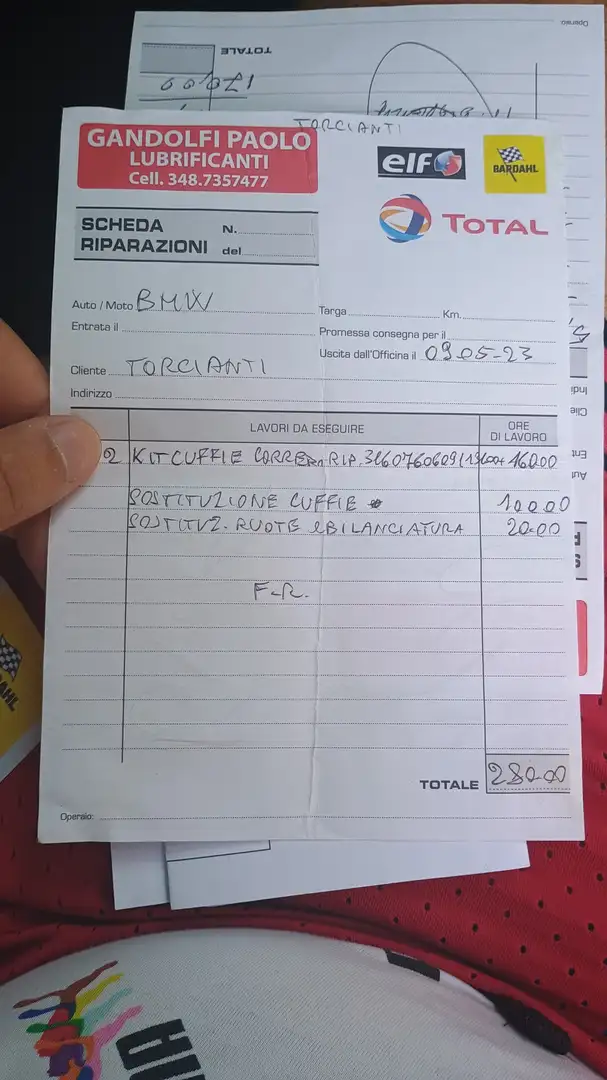 Operaio
TOTALE
170,00
TORCIANTI
GANDOLFI PAOLO
LUBRIFICANTI
Cell. 348.7357477
elf
BARDAHL
TOTAL
SCHEDA
RIPARAZIONI
N.
del
Auto / Moto BMW
Targa Km.
Entrata il
Promessa consegna per il
Uscita dall'Officina il 09-05-23
Cliente TORCIANTI
Indirizzo
LAVORI DA ESEGUIRE
ORE
DI LAVORO
2 KIT CUFFIE 31607606091 160.00
SOSTITUZIONE CUFFIE 100.00
SOSTITUZ. RUOTE EBILANCIATURA 20.00
F-R.
TOTALE 280.00
Operaio:
BARDAHL